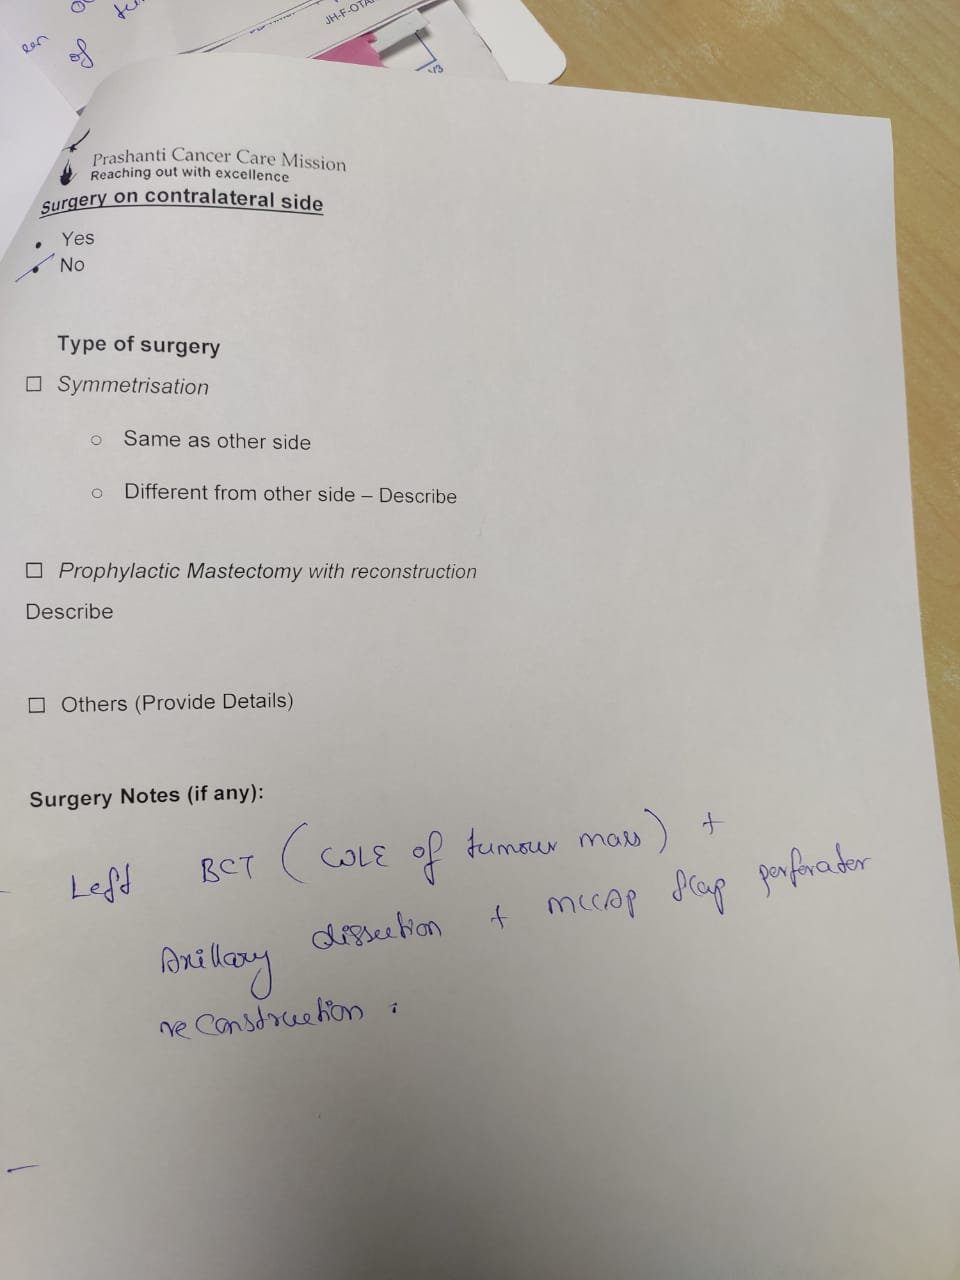 of
JH-F-OTA
1/3
Prashanti Cancer Care Mission
Reaching out with excellence
Surgery on contralateral side
Yes
No
Type of surgery
☐ Symmetrisation
○ Same as other side
○ Different from other side – Describe
☐ Prophylactic Mastectomy with reconstruction
Describe
☐ Others (Provide Details)
Surgery Notes (if any):
Left BCT ( WLE of tumour mass) +
Axillary dissection + MCCAP flap perforater
reconstruction .